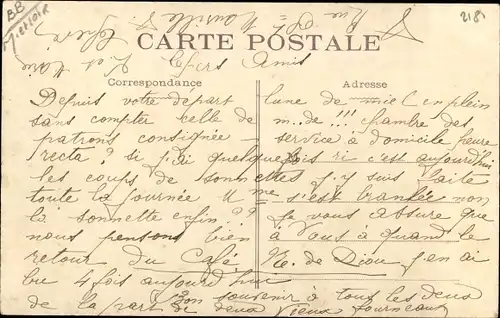 BB
2181
CARTE POSTALE
Chers Amis
Correspondance
Adresse
Depuis votre départ
sans compter celle de
patrons consignée
recta? si j'ai quelquefois ri c'est aujourd'hui
les coups de sonnettes j'y suis faite
toute la journée M me s'est branlée non
la sonnette enfin??
nous pensons bien
retour du Café
bu 4 fois aujourd'hui
lune de miel (en plein
m.. de !!! chambre des
service à domicile heure
Je vous assure que
à Vous à quand le
N. de Diou j'en ai
Bon souvenir à tous les deux
de la part de deux Vieux fourneaux